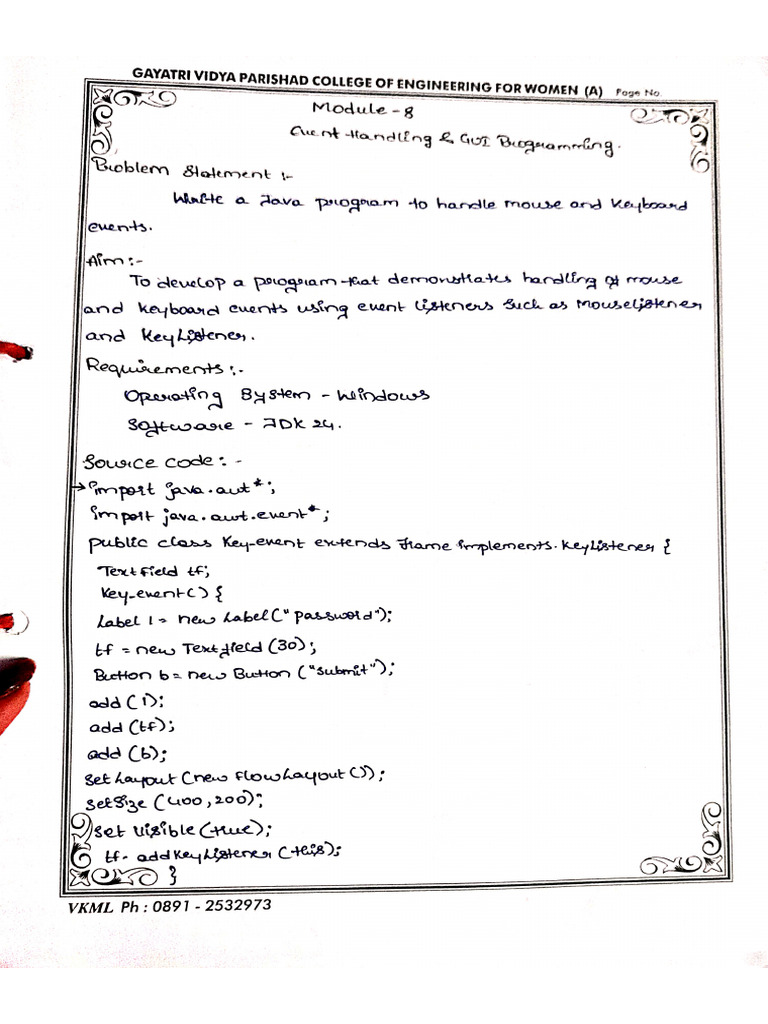 GAYATRI VIDYA PARISHAD COLLEGE OF ENGINEERING FOR WOMEN (A) Page No.
Module - 8
Event Handling & GUI Programming.
Problem Statement :-
Write a Java program to handle mouse and keyboard
events.
Aim:-
To develop a program that demonstrates handling of mouse
and keyboard events using event listeners such as MouseListener
and KeyListener.
Requirements:-
Operating System - Windows
Software - JDK 24.
Source code: -
→ import java.awt*;
import java.awt.event*;
public class Key-event extends Frame implements KeyListener {
TextField tf;
Key-event() {
Label l = new Label("password");
tf = new TextField (30);
Button b = new Button ("submit");
add (l);
add (tf);
add (b);
set Layout (new FlowLayout ());
setSize (400, 200);
set Visible (true);
tf. addKeyListener (this);
}
VKML Ph : 0891 - 2532973